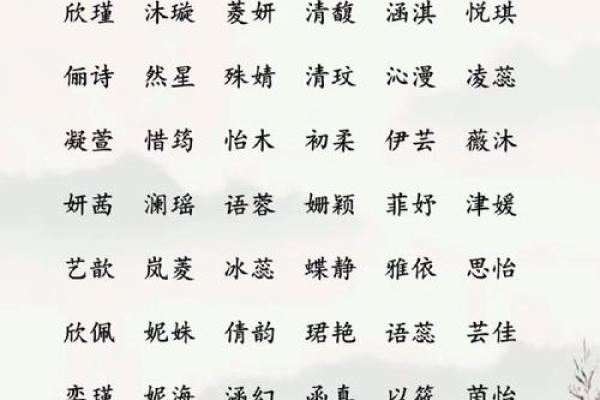 欣瑾 沐璇 菱妍 清馥 涵淇 悦琪
俪诗 然星 殊婧 清玟 沁漫 凌蕊
凝萱 惜筠 怡木 初柔 伊芸 薇沐
妍茜 澜瑶 语蓉 姗颖 菲妤 津媛
艺歆 岚菱 冰蕊 蝶静 雅依 思怡
欣佩 妮姝 倩韵 珺艳 语蕊 芸佳
奕瑾 妮海 涵幻 函真 以筱 茵怡